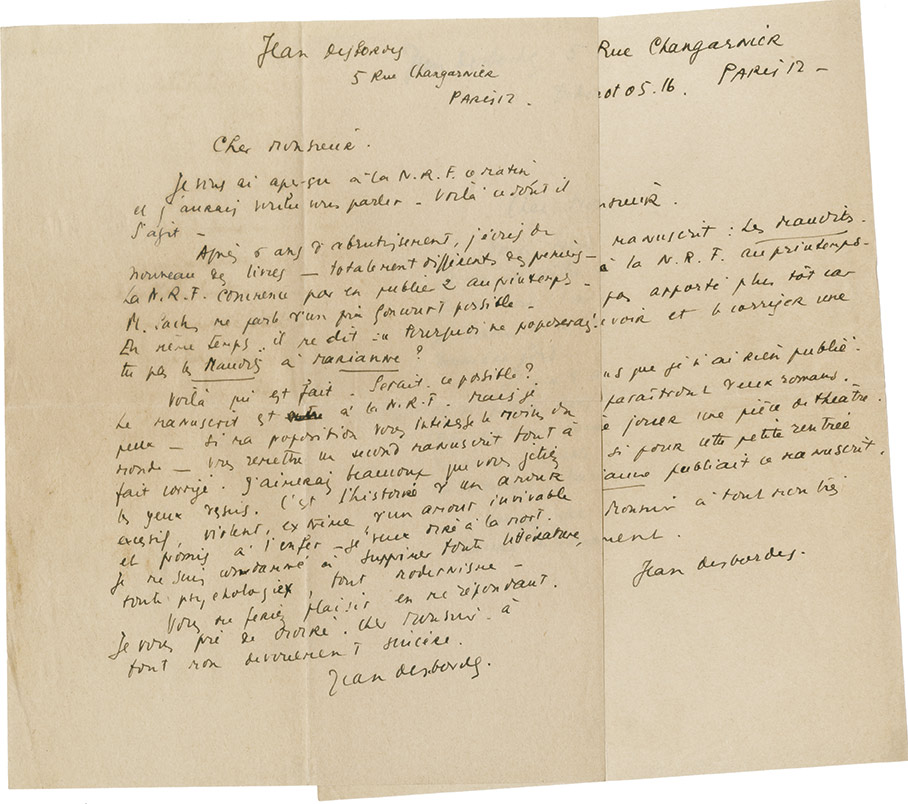 Jean Desbordes
5 Rue Changarnier
PARIS 12.
Cher Monsieur.
Je vous ai aperçu à la N.R.F. ce matin
et j'aurais voulu vous parler - Voilà ce dont il
s'agit -
Après 6 ans d'abrutissement, j'écris de
nouveau des livres - totalement différents des premiers -
La N.R.F. commence par en publier 2 au printemps -
M. Sachs me parle d'un prix Goncourt possible -
En même temps, il me dit : "Pourquoi ne proposerais
tu pas les Maudits à Marianne ?
Voilà qui est fait. Serait-ce possible ?
Le manuscrit est à la N.R.F. mais je
peux - si ma proposition vous intéresse le moins du
monde - vous remettre un second manuscrit tout à
fait corrigé. J'aimerais beaucoup que vous jetiez
les yeux dessus. C'est l'histoire d'un amour
excessif, violent, extrême d'un amour invivable
et promis à l'enfer - je veux dire à la mort.
Je me suis condamné à supprimer toute littérature,
toute psychologie, tout modernisme -
Vous me feriez plaisir en me répondant.
Je vous prie de croire, cher Monsieur à
tout mon dévouement sincère.
Jean Desbordes.
Rue Changarnier
ot 05.16. PARIS 12 -
nsieur.
manuscrit : Les Maudits.
à la N.R.F. au printemps -
pas apporté plus tôt car
voir et le corriger une
us que je n'ai rien publié.
paraîtront deux romans.
jouer une pièce de théâtre.
si pour cette petite rentrée
anne publiait ce manuscrit.
Monsieur à tout mon très
ment.
Jean Desbordes.